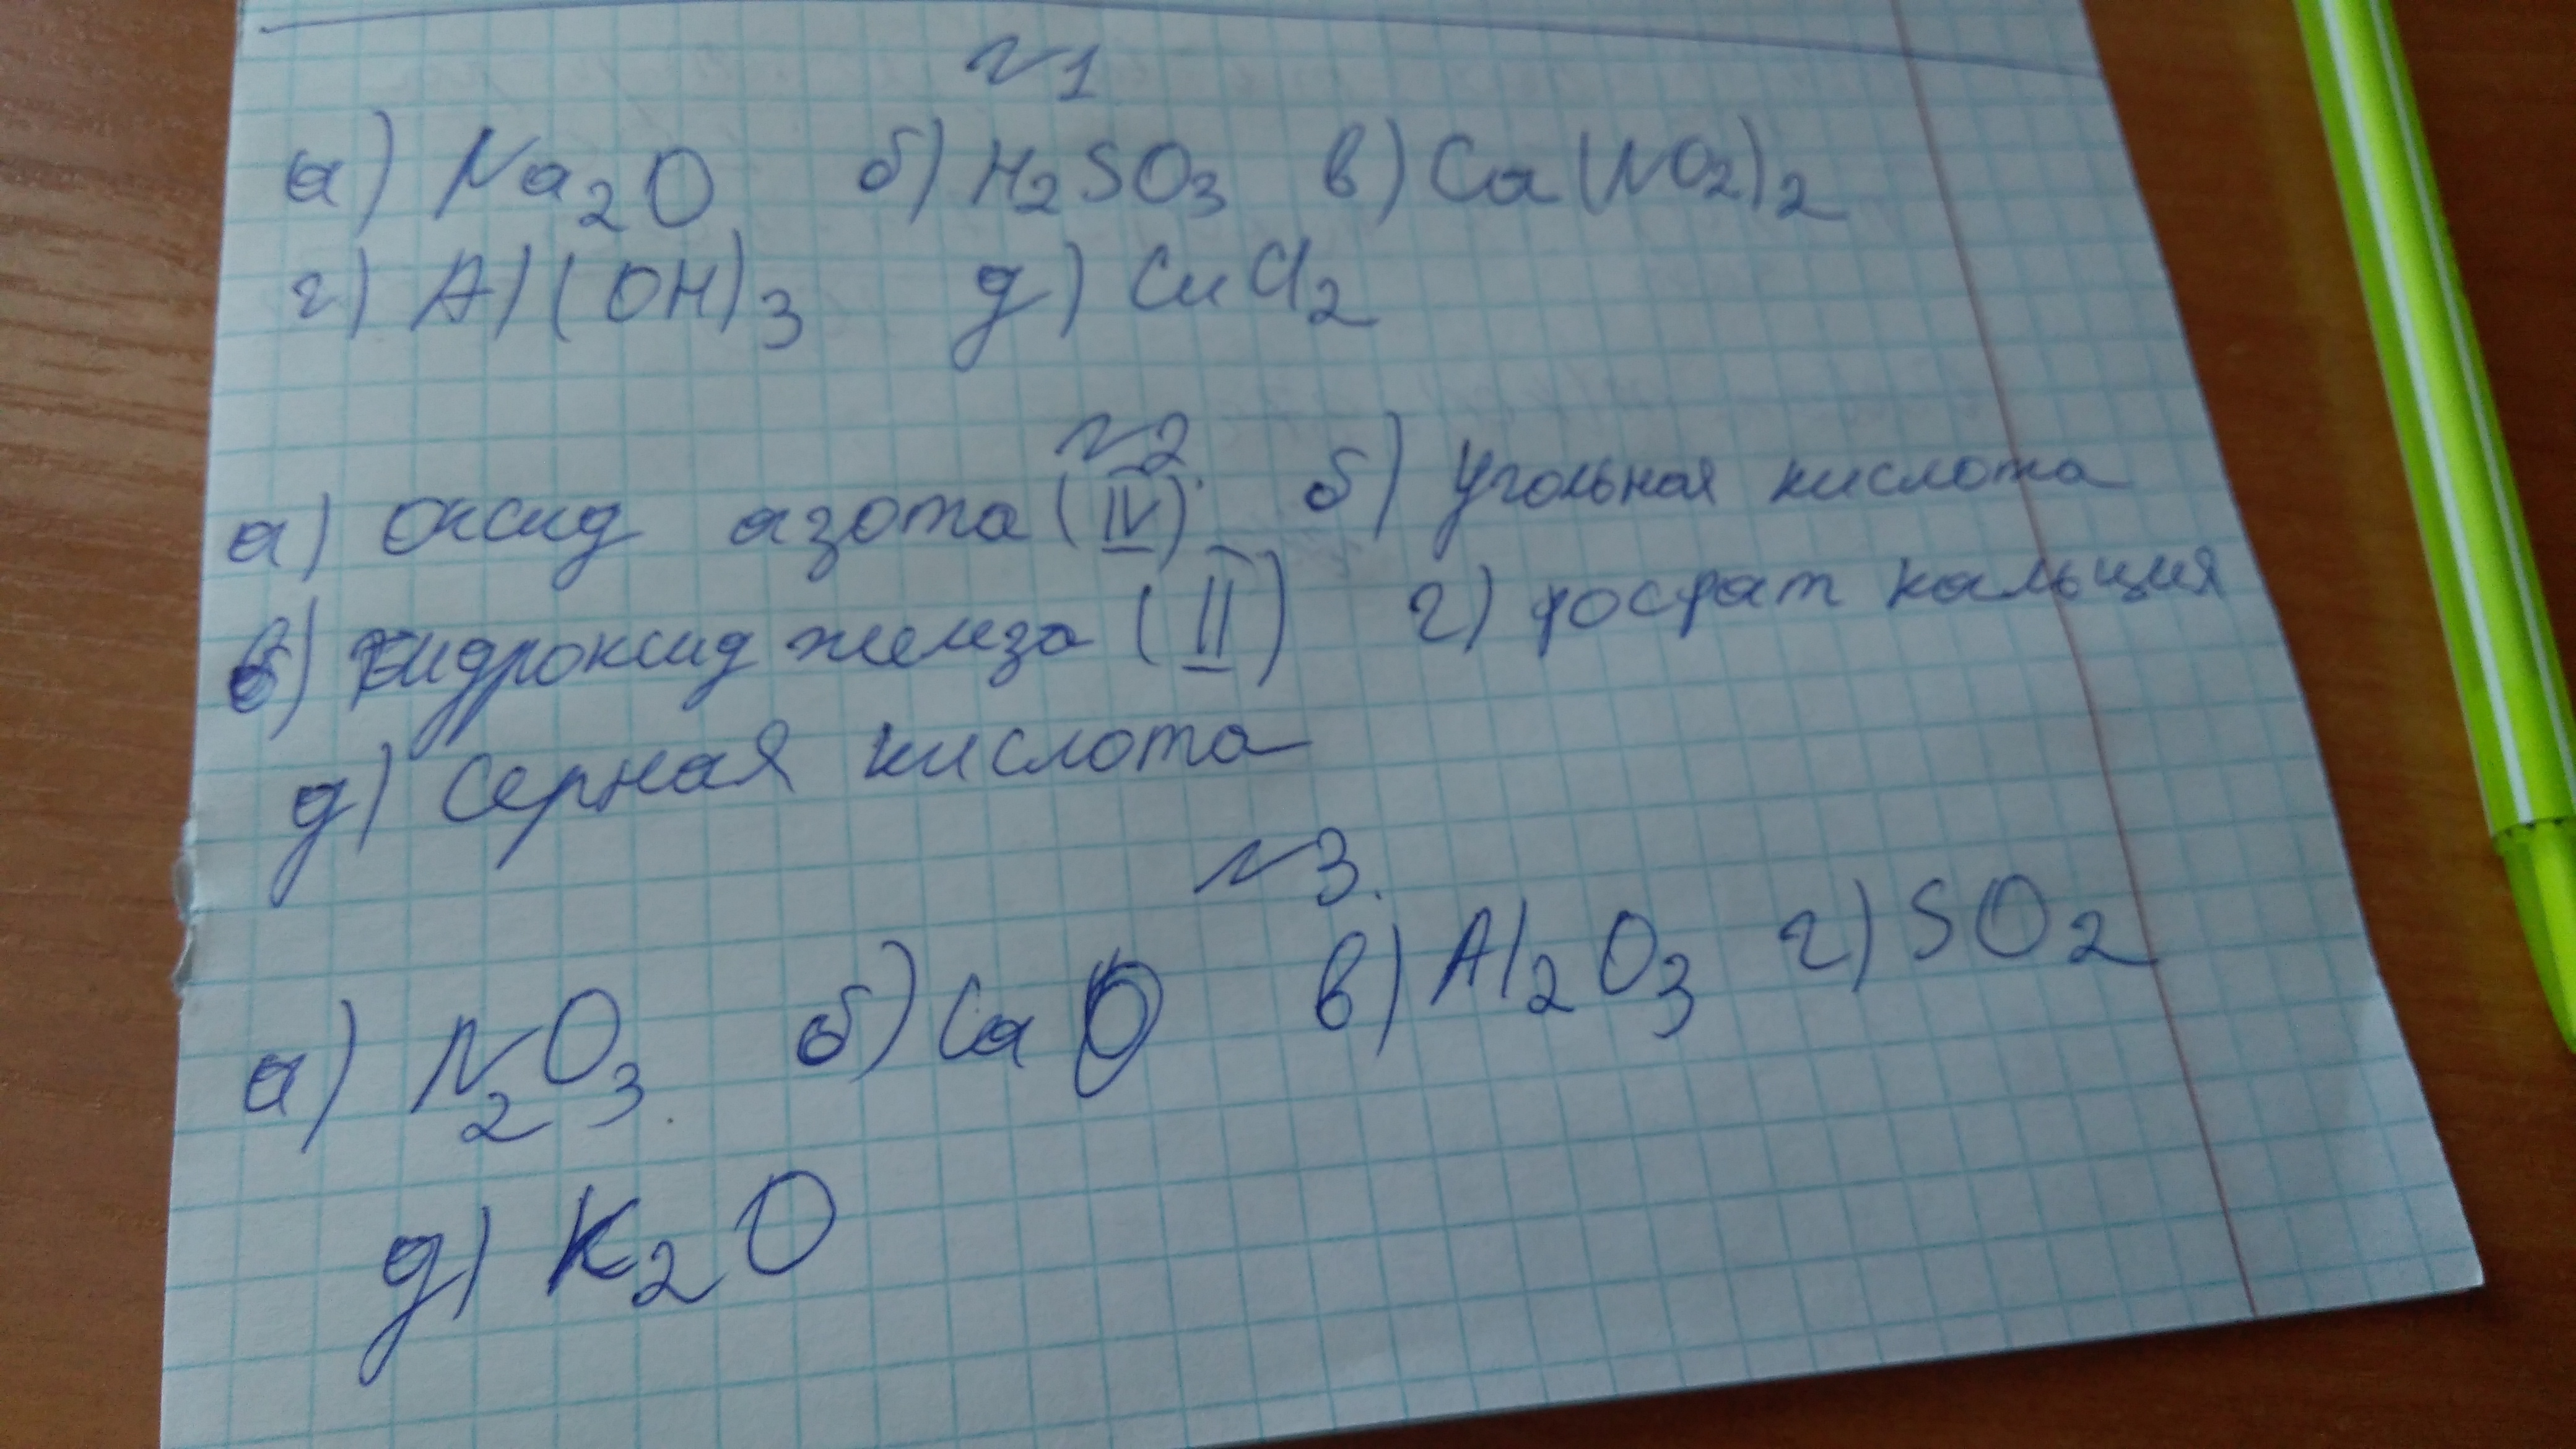 №1
а) Na2O б) H2SO3 в) Ca(NO2)2
г) Al(OH)3 д) CuCl2
№2.
а) оксид азота (IV). б) угольная кислота
в) гидроксид железа (II) г) фосфат кальция
д) серная кислота
№3.
а) N2O3. б) CaO в) Al2O3 г) SO2
д) K2O